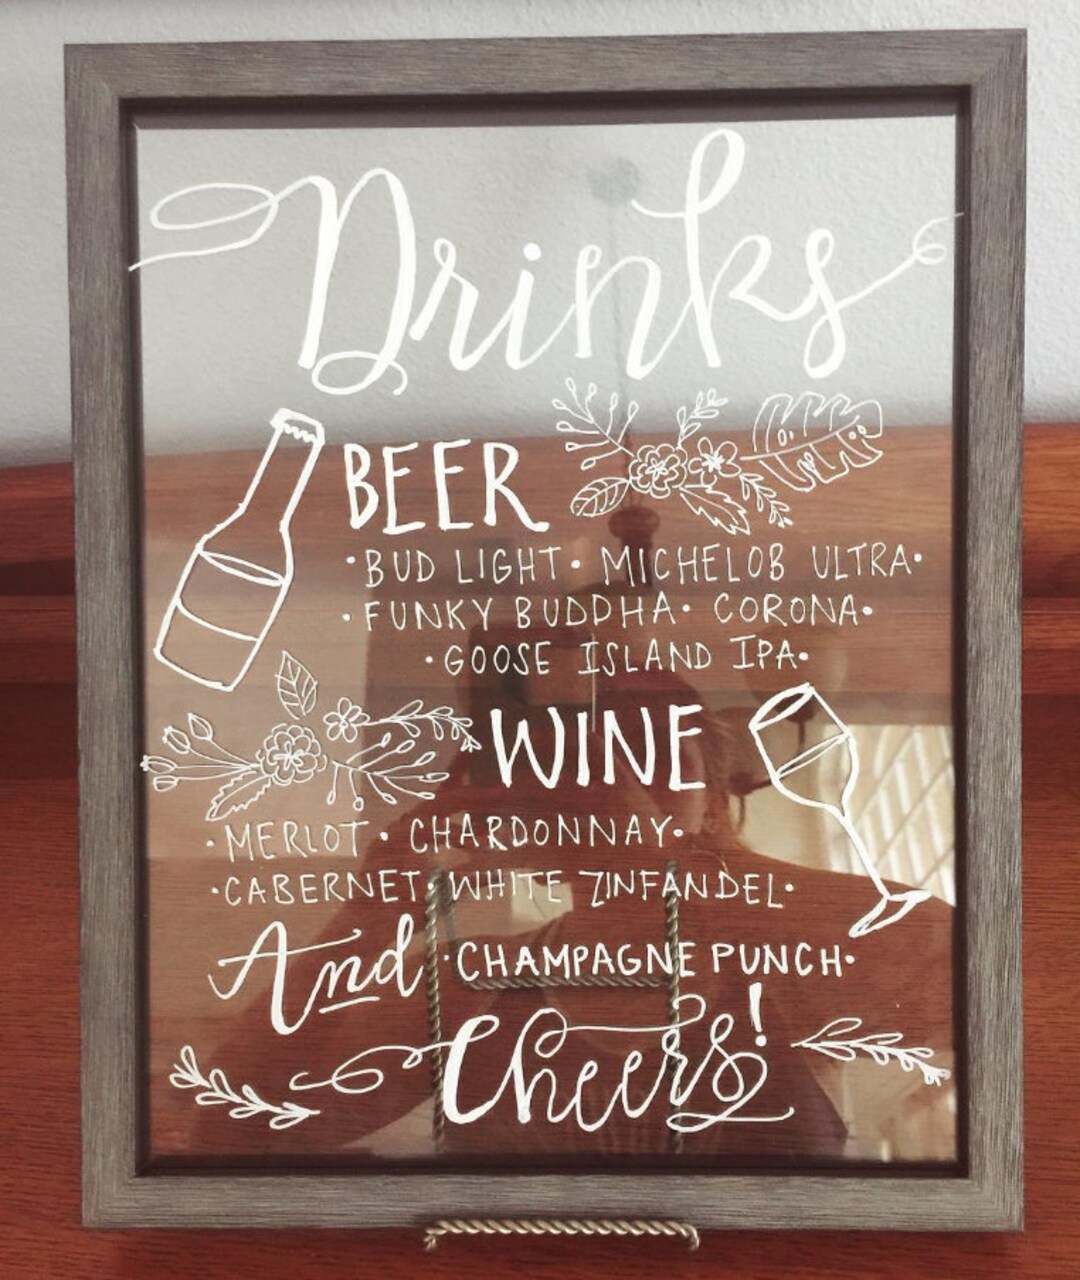 Drinks
BEER
·BUD LIGHT· MICHELOB ULTRA·
·FUNKY BUDDHA· CORONA·
·GOOSE ISLAND IPA·
WINE
·MERLOT· CHARDONNAY·
·CABERNET· WHITE ZINFANDEL·
And ·CHAMPAGNE PUNCH·
Cheers!